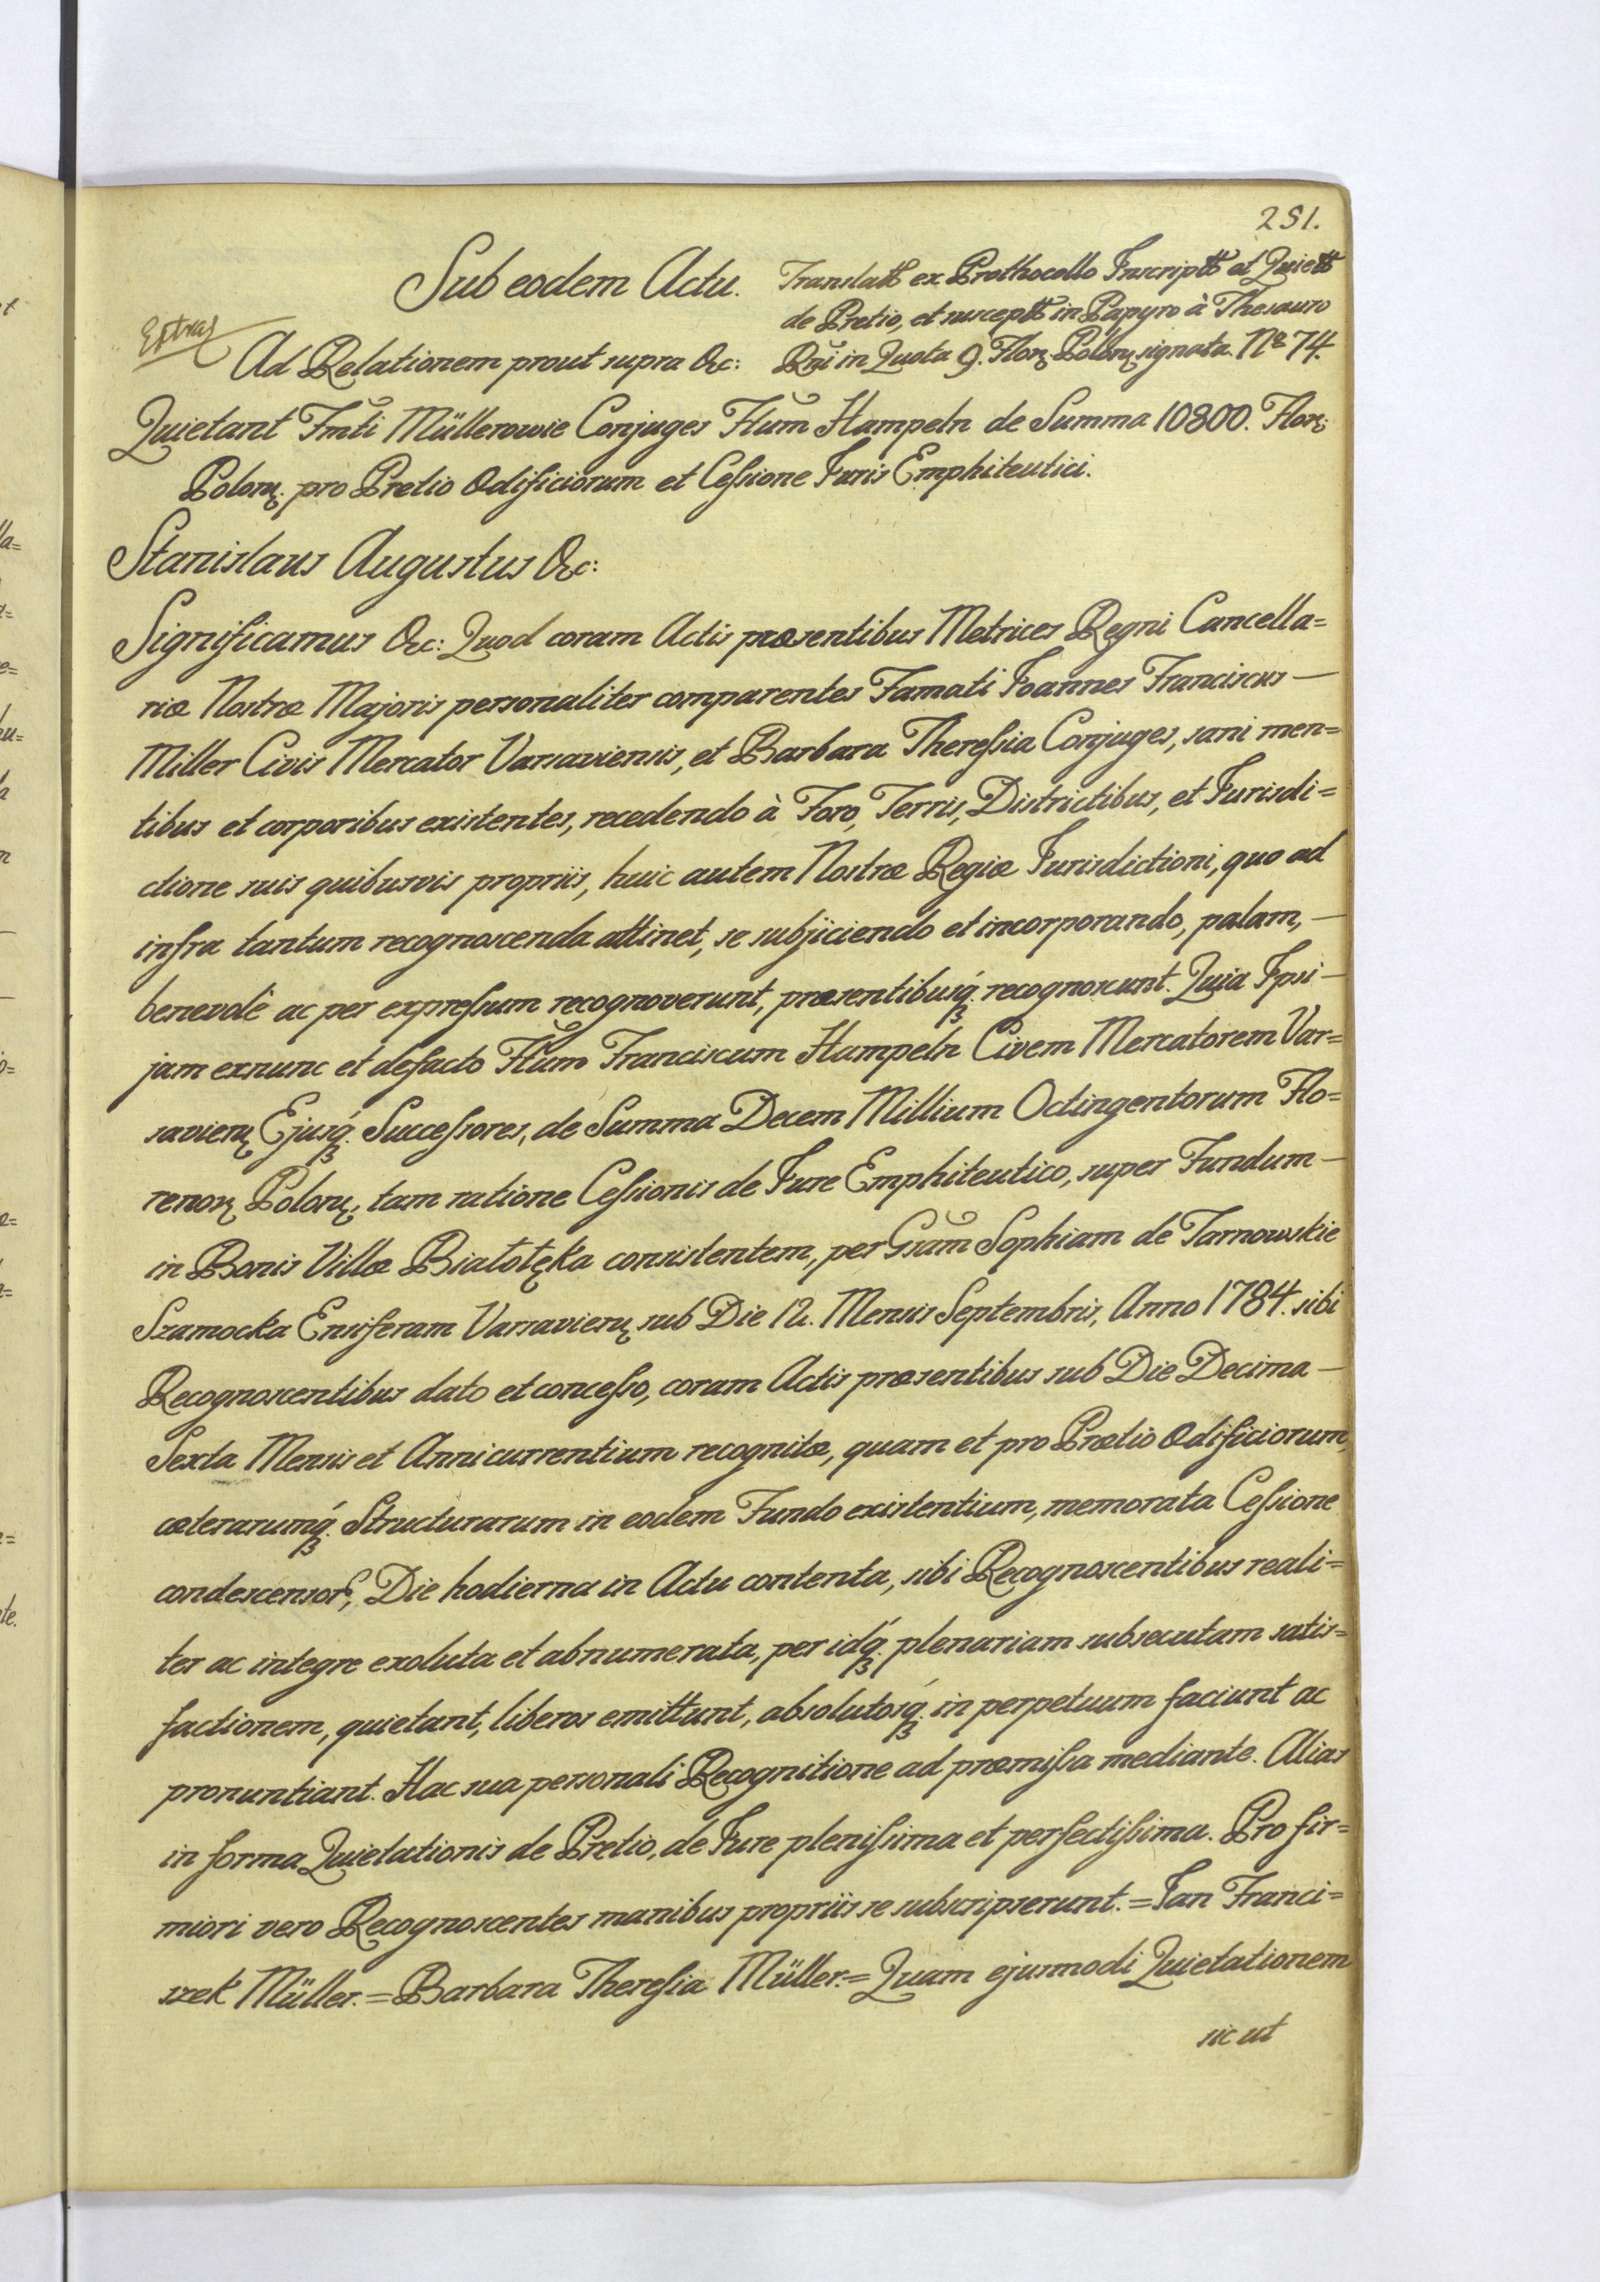 251.
Sub eodem Actu.
Translatũ ex Prothocollo Inscriptũ et Quietũ
de Pretio, et susceptũ in Papyro à Thesauro
Rni in Quota 9. Flor. Polon. signata. No 74.
Extras
Ad Relationem prout supra &c:
Quietant Fmti Müllerowie Conjuges Flum Hampeln de Summa 10800. Flor.
Polon. pro Pretio Ædificiorum et Cessione Juris Emphiteutici.
Stanislaus Augustus &c:
Significamus &c: Quod coram Actis præsentibus Metrices Regni Cancella=
riæ Nostræ Majoris personaliter comparentes Famati Joannes Franciscus —
Miller Civis Mercator Varsaviensis, et Barbara Theressia Conjuges, sani men=
tibus et corporibus existentes, recedendo à Foro, Terris, Districtibus, et Jurisdi=
ctione suis quibusvis propriis, huic autem Nostræ Regiæ Jurisdictioni, quo ad
infra tantum recognoscenda attinet, se subjiciendo et incorporando, palam, —
benevolè ac per expressum recognoverunt, præsentibusq. recognoscunt. Quia Ipsi —
jam exnunc et defacto Flum Franciscum Hampeln Civem Mercatorem Var=
savien. Ejusq. Successores, de Summa Decem Millium Octingentorum Flo=
renor. Polon., tam ratione Cessionis de Jure Emphiteutico, super Fundum —
in Bonis Villæ Białołęka consistentem, per Gsam Sophiam de Tarnowskie
Szamocka Ensiferam Varsavien. sub Die 12. Mensis Septembris, Anno 1784. sibi
Recognoscentibus dato et concesso, coram Actis præsentibus sub Die Decima —
Sexta Mensis et Anni currentium recognitæ, quam et pro Prætio Ædificiorum,
cæterarumq. Structurarum in eodem Fundo existentium, memorata Cessione
condescensor., Die hodierna in Actu contenta, sibi Recognoscentibus reali=
ter ac integre exoluta et abnumerata, per idq. plenariam subsecutam satis=
factionem, quietant, liberos emittunt, absolutosq. in perpetuum faciunt ac
pronuntiant. Hac sua personali Recognitione ad præmissa mediante. Alias
in forma Quietationis de Pretio, de Jure plenissima et perfectissima. Pro fir=
miori vero Recognoscentes manibus propriis se subscripserunt. = Jan Franci=
szek Müller. = Barbara Theresia Müller. = Quam ejusmodi Quietationem
sic ut